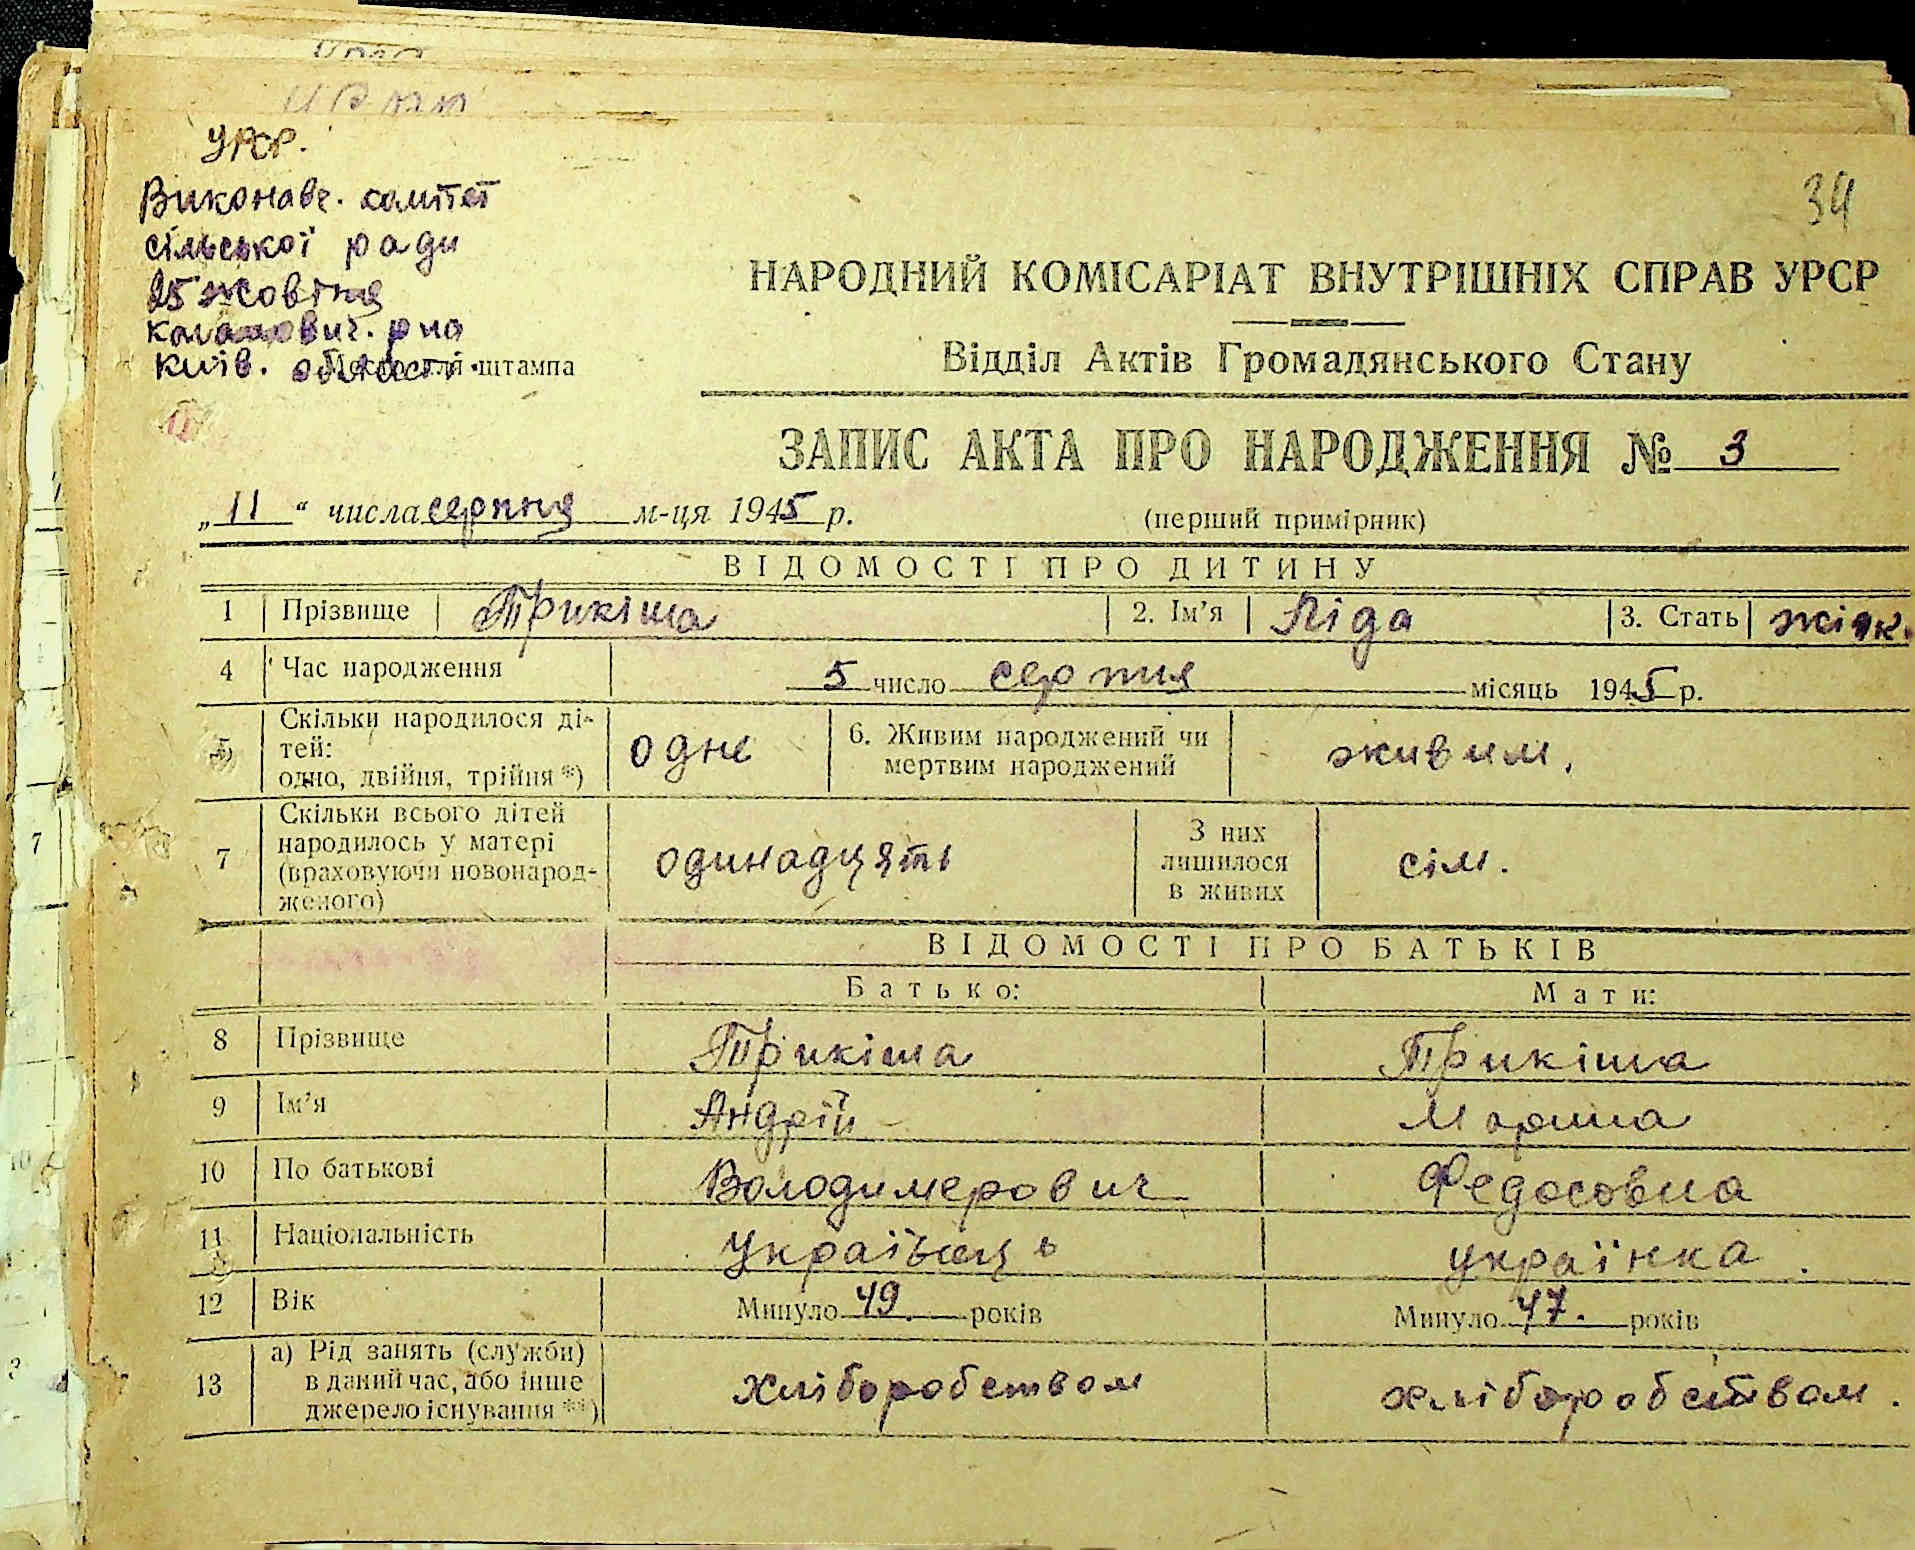 УРСР.
Виконавч. комітет
сільської ради
25 жовтня
Київ. області
штампа
34
НАРОДНИЙ КОМІСАРІАТ ВНУТРІШНІХ СПРАВ УРСР
Відділ Актів Громадянського Стану
ЗАПИС АКТА ПРО НАРОДЖЕННЯ № 3
„11“ числа серпня м-ця 1945 р. (перший примірник)
ВІДОМОСТІ ПРО ДИТИНУ
1 Прізвище Трикіша 2. Ім’я Ліда 3. Стать жіок.
4 Час народження 5 число серпня місяць 1945 р.
5 Скільки народилося ді-
тей:
одно, двійня, трійня *) одне 6. Живим народжений чи
мертвим народжений живим.
7 Скільки всього дітей
народилось у матері
(враховуючи новонарод-
женого) одинадцять З них
лишилося
в живих сім.
ВІДОМОСТІ ПРО БАТЬКІВ
Батько: Мати:
8 Прізвище Трикіша Трикіша
9 Ім’я Андрій Марина
10 По батькові Володимерович Федосовна
11 Національність Українець українка.
12 Вік Минуло 49 років Минуло 47. років
13 а) Рід занять (служби)
в даний час, або інше
джерело існування **) хліборобством хліборобством.
7
10